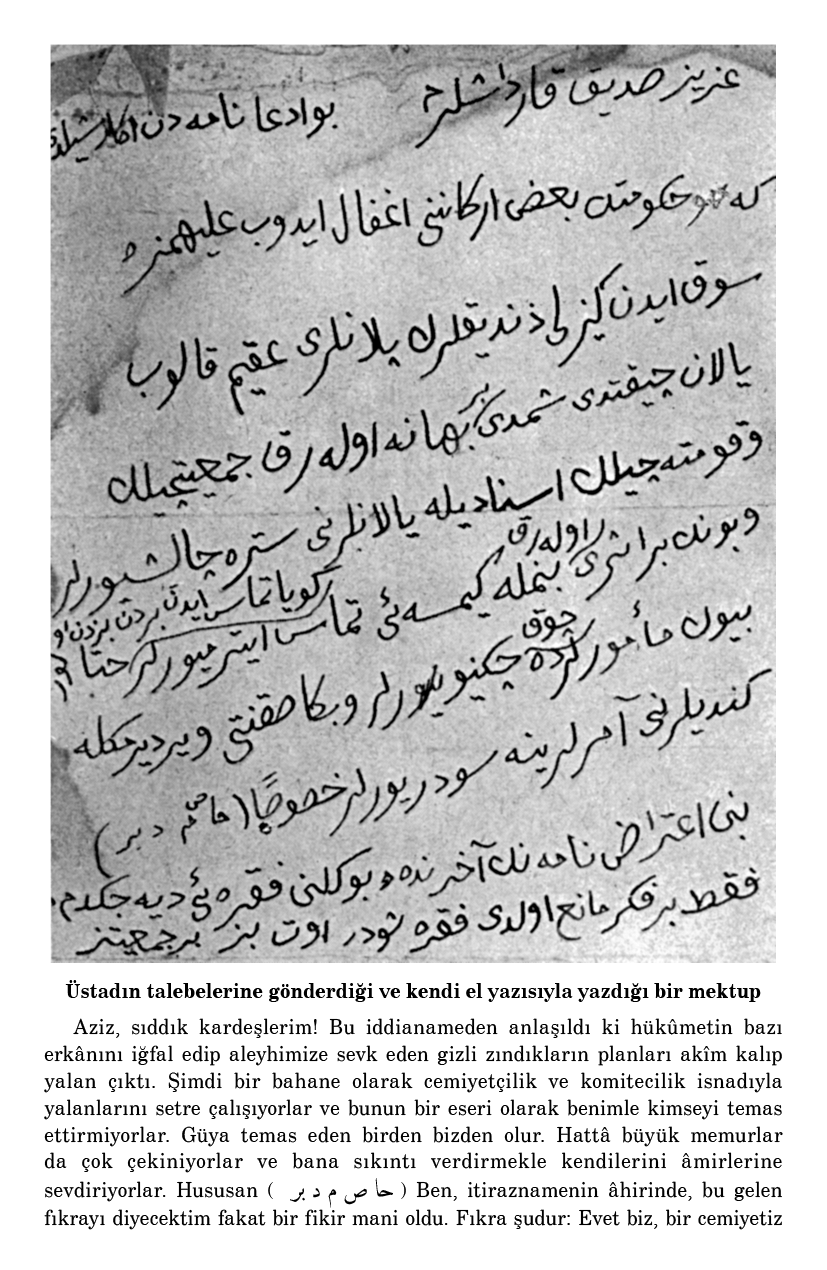 عزيز صديق قارداشلرم بو ادعا نامه دن اكلاشيلدى
كه حكومتك بعض اركاننى اغفال ايدوب عليهمزه
سوق ايدن كيزلى زنديقلرك پلانلرى عقيم قالوب
يالان چيقدى شمدى بر بهانه اوله رق جمعيتچيلك
وقومته چيلك اسناديله يالانلرنى ستره چاليشيورلر
وبونك بر اثرى اوله رق بنمله كيمسه ئى تماس ايتديرميورلر حتا
كويا تماس ايدن بردن بزدن او
بيوك مأمورلرده چوق چكينيورلر وبكا صقنتى ويرديرمكله
كنديلرنى آمرلرينه سودريورلر خصوصًا (حا ص م د بر)
بنى اعتراض نامه نك آخرنده بو كلن فقره ئى ديه جكدم.
فقط بر فكر مانع اولدى فقره شودر اوت بز بر جمعيتز
Üstadın talebelerine gönderdiği ve kendi el yazısıyla yazdığı bir mektup
Aziz, sıddık kardeşlerim! Bu iddianameden anlaşıldı ki hükûmetin bazı
erkânını iğfal edip aleyhimize sevk eden gizli zındıkların planları akîm kalıp
yalan çıktı. Şimdi bir bahane olarak cemiyetçilik ve komitecilik isnadıyla
yalanlarını setre çalışıyorlar ve bunun bir eseri olarak benimle kimseyi temas
ettirmiyorlar. Güya temas eden birden bizden olur. Hattâ büyük memurlar
da çok çekiniyorlar ve bana sıkıntı verdirmekle kendilerini âmirlerine
sevdiriyorlar. Hususan ( حا ص م د بر ) Ben, itiraznamenin âhirinde, bu gelen
fıkrayı diyecektim fakat bir fikir mani oldu. Fıkra şudur: Evet biz, bir cemiyetiz